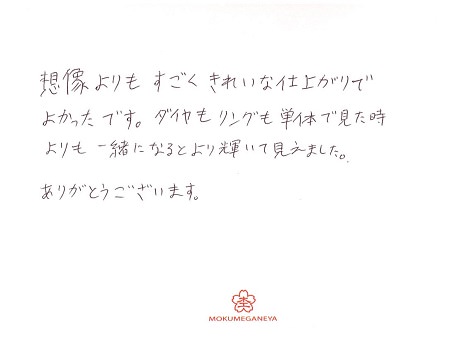 想像よりも すごく きれいな仕上がりで
よかったです。ダイヤも リングも 単体で見た時
よりも 一緒になるとより輝いて見えました。
ありがとうございます。
杢
MOKUMEGANEYA